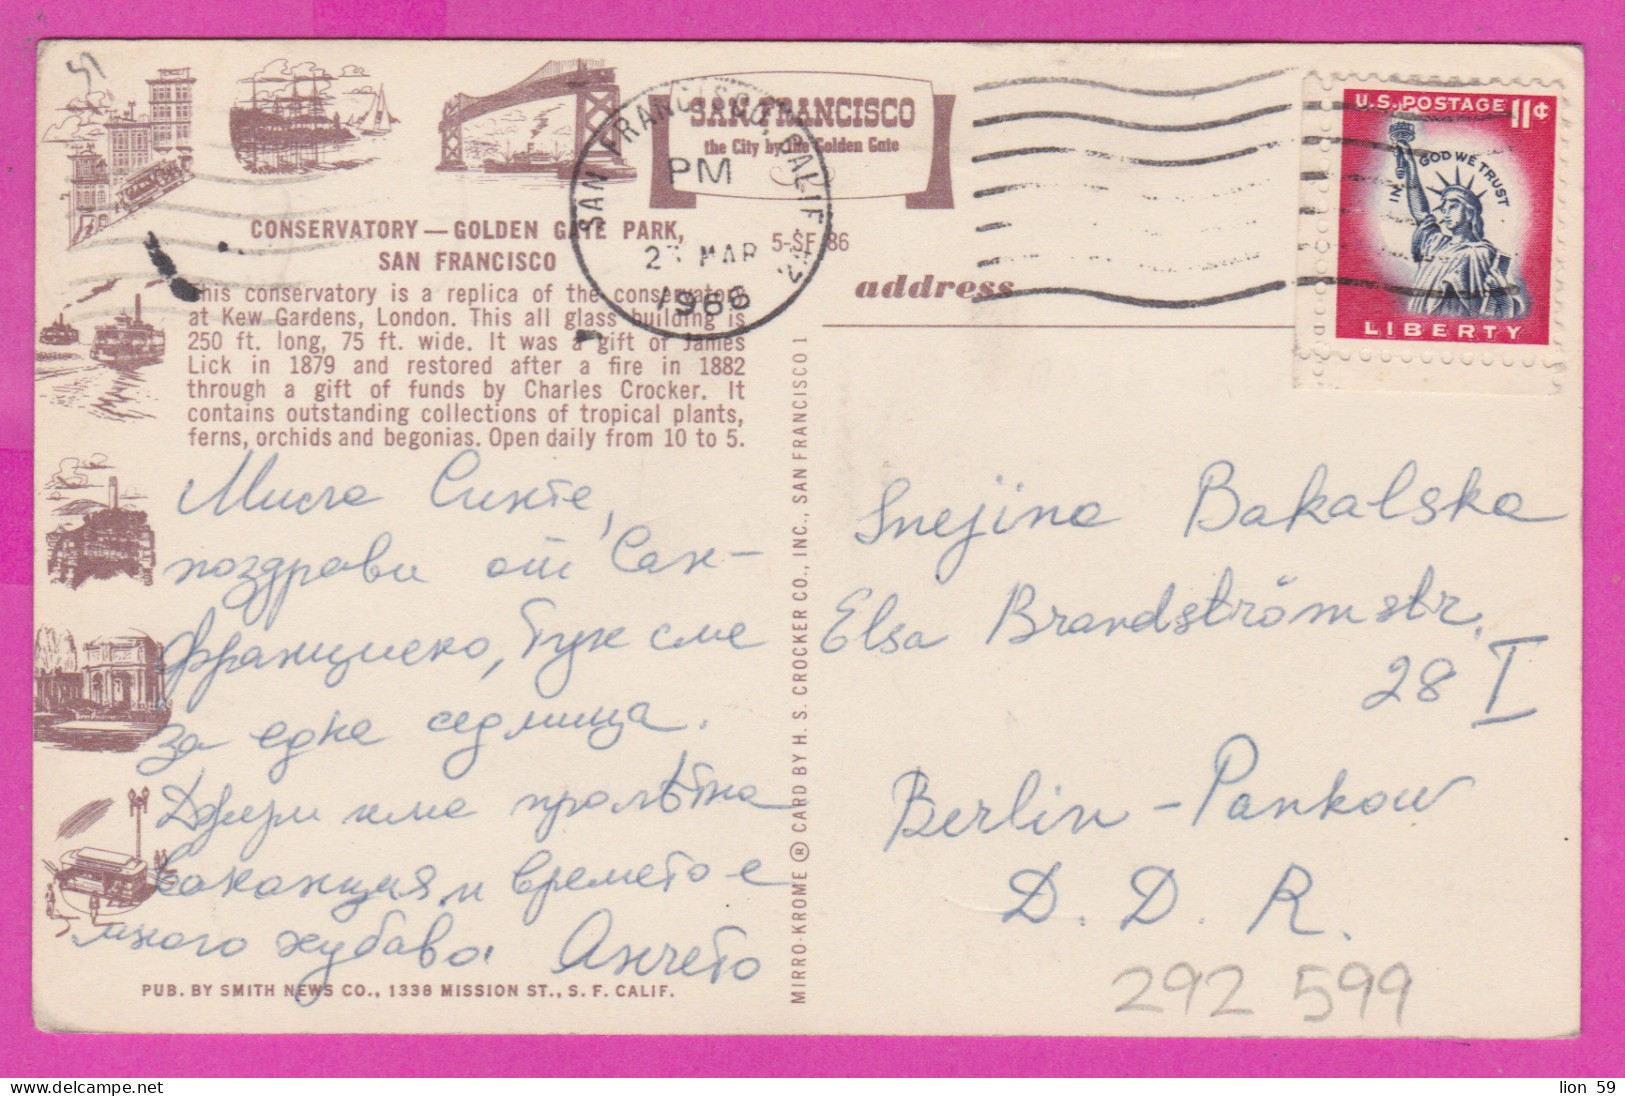 SAN FRANCISCO
the City by the Golden Gate
SAN FRANCISCO, CALIF.
PM
MAR
1966
U.S. POSTAGE 11¢
IN GOD WE TRUST
LIBERTY
CONSERVATORY — GOLDEN GATE PARK,
SAN FRANCISCO
5-SF 86
This conservatory is a replica of the conservatory
at Kew Gardens, London. This all glass building is
250 ft. long, 75 ft. wide. It was a gift of James
Lick in 1879 and restored after a fire in 1882
through a gift of funds by Charles Crocker. It
contains outstanding collections of tropical plants,
ferns, orchids and begonias. Open daily from 10 to 5.
address
поздрави от Сан-
Франциско, Тук сме
за една седмица.
Джери има пролѣтна
ваканция и времето е
много хубаво. Анчето
Snejina Bakalska
Elsa Brandströmstr.
28 I
Berlin - Pankow
D. D. R.
292 599
MIRRO-KROME ® CARD BY H. S. CROCKER CO., INC., SAN FRANCISCO 1
PUB. BY SMITH NEWS CO., 1338 MISSION ST., S. F. CALIF.
lion 59